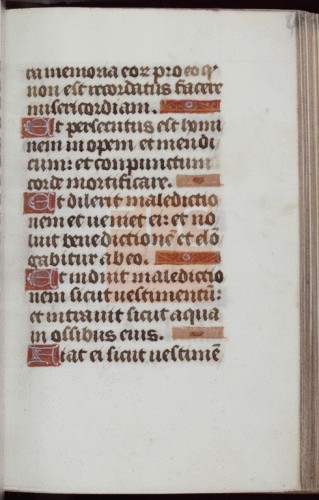 ra memoria eoꝝ pro eo q
non est recordatus facere
misericordiam.
Et persecutus est homi
nem in opem et mendi
cum: et conpunctum
corde mortificare.
Et dilexit maledictio
nem et ueniet ei: et no
luit benedictionē et elō
gabitur ab eo.
Et induit maledictio
nem sicut uestimentū:
et intrauit sicut aqua
in ossibus eius.
Fiat ei sicut uestimē